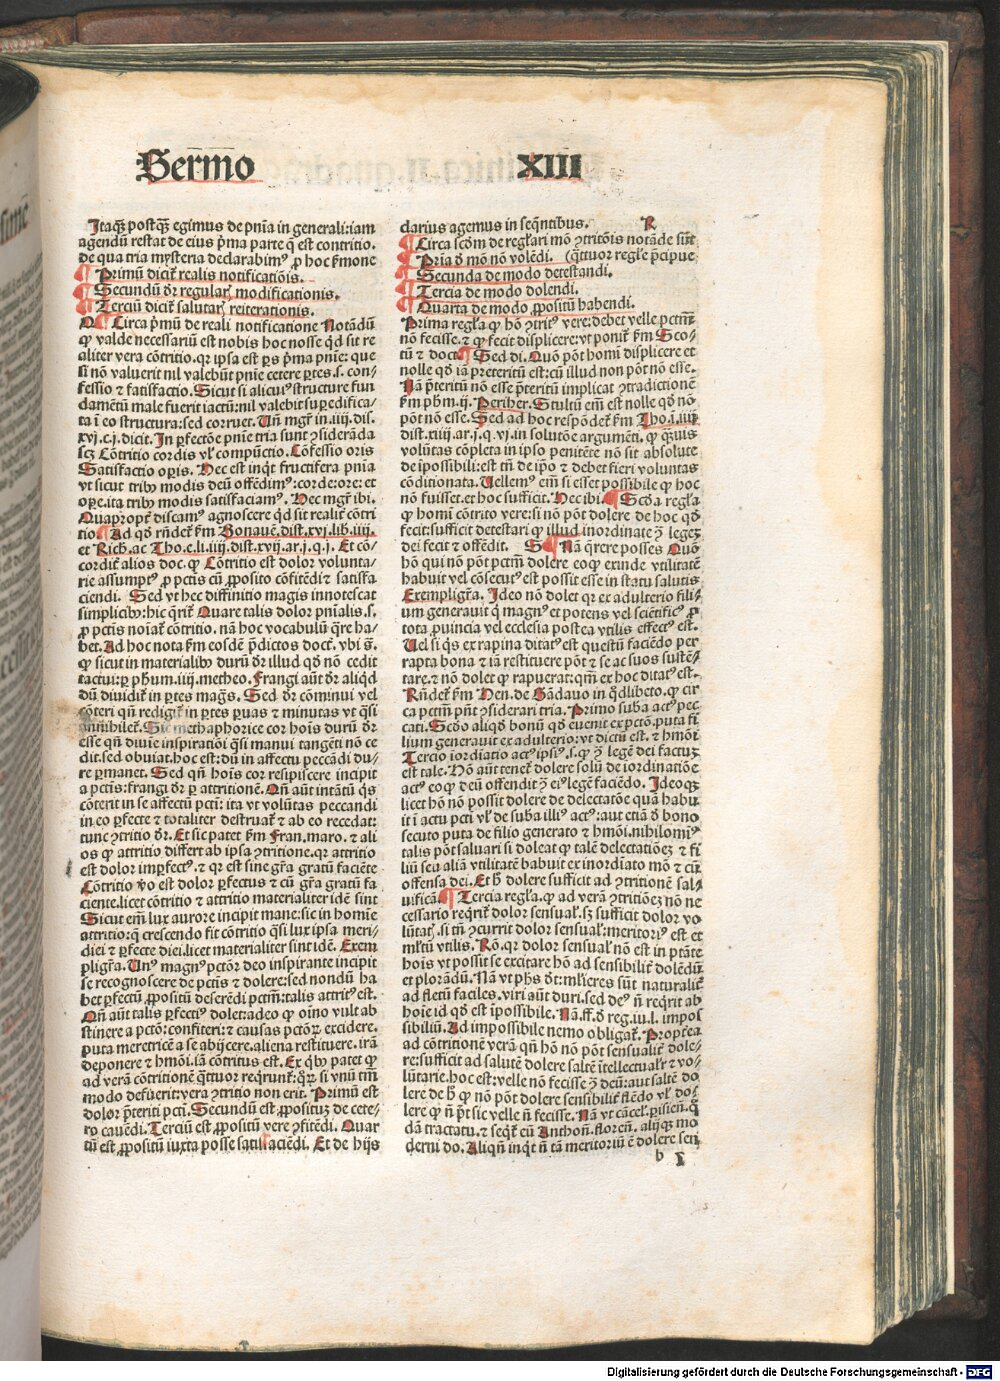 Sermo XIII
Itaqꝫ postqꝫ̄ egimus de pn̄ia in generali: iam
agendū restat de eius p̄ma parte q̄ est contritio.
de qua tria mysteria declarabimꝰ ꝓ hoc ẜmone
Primū dicit̄ realis notificatiōnis.
Secundū dr̄ regularꝭ modificationis.
Terciū dicit̄ salutarꝭ reiterationis.
Circa p̄mū de reali notificatione Notādū
ꝙ valde necessariū est nobis hoc nosse qd̄ sit re
aliter vera cōtritio. qr ipsa est ps̄ p̄ma pn̄ie: que
si nō valuerit nil valebūt pn̄ie cetere ꝑtes. s. con-
fessio ⁊ satisfactio. Sicut si alicuiꝰ structure fun
damētū male fuerit iactū: nil valebit sup edifica-
ta ī eo structura: sed corruet. Un̄ mgr̄ in .iiij. dis.
xvj. c. j. dicit. In ꝑfectōe pn̄ie tria sunt ꝯsiderāda
scꝫ Cōtritio cordis vl̓ compūctio. Cōfessio oris
Satisfactio opis. Hec est inqͥt fructifera pn̄ia
vt sicut tribꝰ modis deū offēdimꝰ: corde: ore: et
oꝑe. ita tribꝰ modis satisfaciamꝰ. Hec mgr̄ ibi.
Quapropt̄ discamꝰ agnoscere qd̄ sit realit̄ cōtri
tio. Ad qd̄ rn̄det̄ ẜm Bonauē. dist. xvj. lib. iiij.
et Rich. ac Tho. e. li. iiij. dist. xvij. ar. j. q. j. Et cō-
cordit̄ alios doc. ꝙ Cōtritio est dolor volunta-
rie assumptꝰ ꝓ pctis cū ꝓposito cōfitēdi ⁊ satisfa
ciendi. Sed vt hec diffinitio magis innotescat
simplicibꝰ: hic q̄rit̄ Quare talis dolor pn̄ialis. s.
ꝓ pctis noīat̄ cōtritio. nā hoc vocabulū q̄re ha-
bet. Ad hoc nota ẜm eosdē p̄dictos doct. vbi s̄.
ꝙ sicut in materialibꝰ durū dr̄ illud qd̄ nō cedit
tactui: ꝑ phūm. iiij. metheo. Frangi aūt dr̄ aliqd
dū diuidit̄ in ꝑtes mag̓s. Sed dr̄ cōminui vel
cōteri qn̄ redigit̄ in ꝑtes ꝑuas ⁊ minutas vt qͣsi
annihilet̄. Sic methaphorice cor hoīs durū dr̄
esse qn̄ diuīe inspiratiōi qͣsi manui tangēti nō ce
dit. sed obuiat. hoc est: dū in affectu peccādi du-
re ꝑmanet. Sed qn̄ hoīs cor resipiscere incipit
a pctis: frangi dr̄ ꝑ attritionē. Qn̄ aūt intātū qͥs
cōterit in se affectū pcti: ita vt volūtas peccandi
in eo ꝑfecte ⁊ totaliter destruat̄ ⁊ ab eo recedat:
tunc ꝯtritio dr̄. Et sic patet ẜm Fran. maro. ⁊ ali
os ꝙ attritio differt ab ipsa ꝯtritione. qr attritio
est dolor imꝑfectꝰ. ⁊ qr est sine gr̄a gratū faciēte
Cōtritio v̄o est dolor ꝑfectus ⁊ cū gr̄a gratū fa
ciente. licet cōtritio ⁊ attritio materialiter idē sint
Sicut em̄ lux aurore incipit mane: sic in homīe
attritio: q̄ crescendo fit cōtritio qͣsi lux ipsa meri-
diei ⁊ ꝑfecte diei. licet materialiter sint idē. Exem
pligr̄a. Unꝰ magnꝰ pctōr deo inspirante incipit
se recognoscere de pctis ⁊ dolere: sed nondū ha
bet ꝑfectū ꝓpositū deserēdi pctm̄: talis attritꝰ est.
Qn̄ aūt talis ꝑfectiꝰ dolet: adeo ꝙ oīno vult ab
stinere a pctō: confiteri: ⁊ causas pctōꝝ excidere.
puta meretricē a se abijcere. aliena restituere. irā
deponere ⁊ hmōi. iā cōtritus est. Ex qͥbꝰ patet ꝙ
ad verā cōtritionē qͣttuor reqͥrunt̄: qͦꝝ si vnū tm̄
modo defuerit: vera ꝯtritio non erit. Primū est
dolor p̄teriti pcti. Secundū est ꝓpositūꝫ de cete-
ro cauēdi. Terciū est ꝓpositū vere ꝯfitēdi. Quar
tū est ꝓpositū iuxta posse satisfaciēdi. Et de hijs
darius agemus in seqn̄tibus. R
Circa scd̄m de regl̓ari mō ꝯtritōis notāde sūt
Pria ē d̓ mō nō volēdi. (qͣttuor regl̓e p̄cipue
Secunda de modo detestandi.
Tercia de modo dolendi.
Quarta de modo ꝓpositū habendi.
Prima regl̓a ꝙ hō ꝯtritꝰ vere: debet velle pctm̄
nō fecisse. ⁊ ꝙ fecit displicere: vt ponit̄ ẜm Sco-
tū ⁊ doct. Sed di. Quō pōt homī displicere et
nolle qd̄ iā preteritū est: cū illud non pōt nō esse.
Nā p̄teritū nō esse p̄teritū implicat ꝯtradictionē
ẜm phm. ij. Periher. Stultū em̄ est nolle qd̄ nō
pōt nō esse. Sed ad hoc respōdet̄ ẜm Tho. i. iiij.
dist. xiiij. ar. j. q. vj. in solutōe argumēti. ꝙ qͣuis
volūtas cōpleta in ipso penitēte nō sit absolute
de ipossibili: est tn̄ de ip̄o ⁊ debet fieri voluntas
cōditionata. Uellemꝰ em̄ si esset possibile ꝙ hoc
nō fuisset. et hoc sufficit. Hec ibi. Scd̄a regl̓a
ꝙ homī cōtrito vere: si nō pōt dolere de hoc qd̄
fecit: sufficit detestari ꝙ illud inordinate ꝯ̄ legeꝫ
dei fecit ⁊ offēdit. S Nā q̄rere posses Quō
hō qui nō pōt pctm̄ dolere eo ꝙ exinde vtilitatē
habuit vel cōsecutꝰ est possit esse in statu salutis
Exempligr̄a. Ideo nō dolet qr ex adulterio fili-
um generauit qͥ magnꝰ et potens vel scientificꝰ ꝓ
tota ꝓuincia vel ecclesia postea vtilis effectꝰ est.
Uel si qͥs ex rapina ditatꝰ est questū faciēdo per
rapta bona ⁊ iā restituere pōt ⁊ se ac suos sustē-
tare. ⁊ nō dolet ꝙ rapuerat: qm̄ ex hoc ditatꝰ est.
Rn̄det̄ ẜm Hen. de Gādauo in q̄dlibeto. ꝙ cir
ca pctm̄ pn̄t ꝯsiderari tria. Primo suba actꝰ pec
cati. Scd̄o aliqd̄ bonū qd̄ euenit ex pctō. puta fi
lium generauit ex adulterio: vt dictū est. ⁊ hmōi.
Tercio iordiatio actꝰ ipsiꝰ. s. ꝙ ꝯ̄ legē dei factuꝫ
est tale. Hō aūt tenet̄ dolere solū de iordinatiōe
actꝰ eo ꝙ deū offendit ꝯ̄ eiꝰ legē faciēdo. Ideoqꝫ
licet hō nō possit dolere de delectatōe quā habu
it ī actu pcti vl̓ de suba illiꝰ actꝰ: aut etiā d̓ bono
secuto puta de filio generato ⁊ hmōi. nihilomīꝰ
talis pōt saluari si doleat ꝙ talē delectatiōeꝫ ⁊ fi
liū seu aliā vtilitatē habuit ex inordīato mō ⁊ cū
offensa dei. Et h̓ dolere sufficit ad ꝯtritionē sal-
uificā. Tercia regl̓a. ꝙ ad verā ꝯtritiōeꝫ nō ne
cessario reqͥrit̄ dolor sensualꝭ. sꝫ sufficit dolor vo
lūtatꝭ. si tn̄ ꝯcurrit dolor sensualꝭ: meritoriꝰ est et
ml̓tū vtilis. Rō. qr dolor sensualꝭ nō est in ptāte
hoīs vt possit se excitare hō ad sensibilit̄ dolēdū
et plorādū. Nā vt phs̄ dt̄: ml̓ieres sūt naturalit̄
ad fletū faciles. viri aūt duri. sed deꝰ n̄ reqͥrit ab
hoīe id qd̄ est īpossibile. Nā. ff. d̓ reg. iu. l. impos
sibiliū. Ad impossibile nemo obligat̄. Propterea
ad cōtritionē verā qn̄ hō nō pōt sensualit̄ dole-
re: sufficit ad salutē dolere saltē ītellectualit̄ ⁊ vo-
lūtarie. hoc est: velle nō fecisse ꝯ̄ deū: aut saltē do
lere de h̓ ꝙ nō pōt dolere sensibilit̄ flēdo vl̓ do-
lere ꝙ n̄ p̄t sic velle n̄ fecisse. Nā vt cācel. ꝑisien̄. q̄
dā tractatu. ⁊ seqͥt̄ eū Anthon̄. floreū. alijqꝫ mo
derni do. Aliqn̄ inqͥt n̄ tā meritoriū ē dolere sen
b j
Digitalisierung gefördert durch die Deutsche Forschungsgemeinschaft - DFG